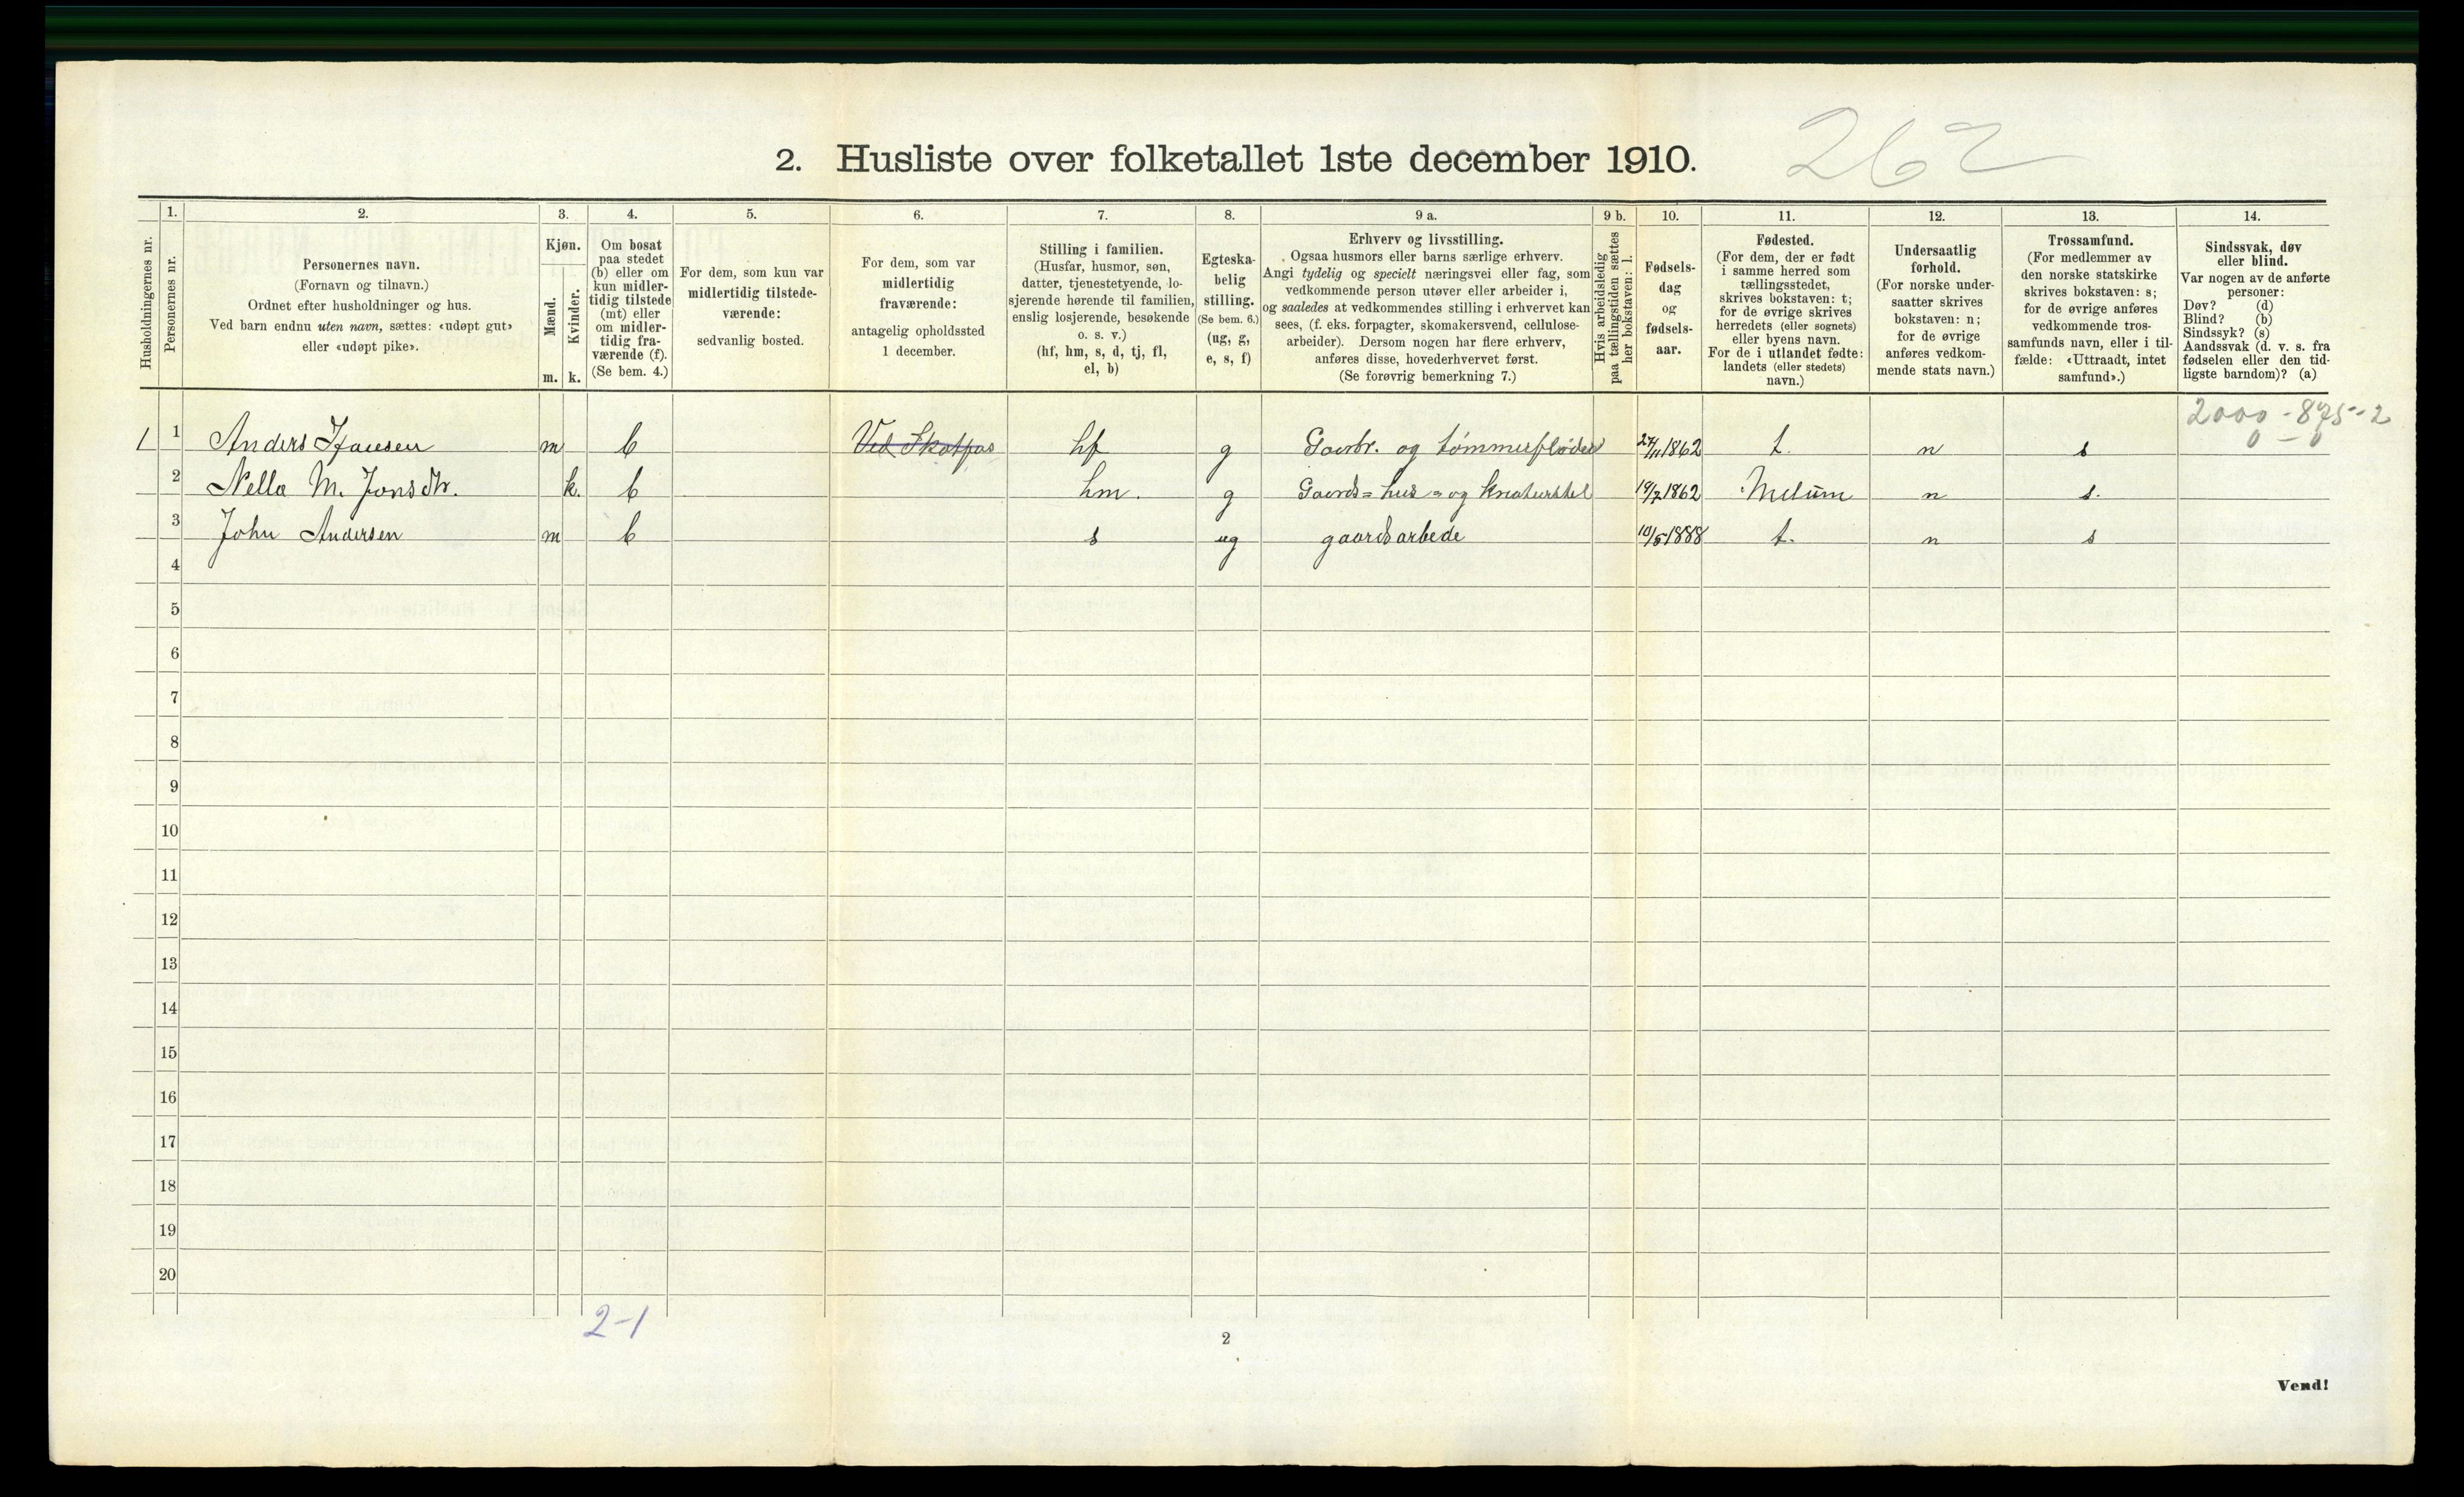 262
2. Husliste over folketallet 1ste december 1910.
1. 2. 3. 4. 5. 6. 7. 8. 9 a. 9 b. 10. 11. 12. 13. 14.
Husholdningernes nr.
Personernes nr.
Personernes navn.
(Fornavn og tilnavn.)
Ordnet efter husholdninger og hus.
Ved barn endnu uten navn, sættes: «udøpt gut»
eller «udøpt pike».
Kjøn.
Mænd.
Kvinder.
m. k.
Om bosat
paa stedet
(b) eller om
kun midler-
tidig tilstede
(mt) eller
om midler-
tidig fra-
værende (f).
(Se bem. 4.)
For dem, som kun var
midlertidig tilstede-
værende:
sedvanlig bosted.
For dem, som var
midlertidig
fraværende:
antagelig opholdssted
1 december.
Stilling i familien.
(Husfar, husmor, søn,
datter, tjenestetyende, lo-
sjerende hørende til familien,
enslig losjerende, besøkende
o. s. v.)
(hf, hm, s, d, tj, fl,
el, b)
Egteska-
belig
stilling.
(Se bem. 6.)
(ug, g,
e, s, f)
Erhverv og livsstilling.
Ogsaa husmors eller barns særlige erhverv.
Angi tydelig og specielt næringsvei eller fag, som
vedkommende person utøver eller arbeider i,
og saaledes at vedkommendes stilling i erhvervet kan
sees, (f. eks. forpagter, skomakersvend, cellulose-
arbeider). Dersom nogen har flere erhverv,
anføres disse, hovederhvervet først.
(Se forøvrig bemerkning 7.)
Hvis arbeidsledig
paa tællingstiden sættes
her bokstaven: l.
Fødsels-
dag
og
fødsels-
aar.
Fødested.
(For dem, der er født
i samme herred som
tællingsstedet,
skrives bokstaven: t;
for de øvrige skrives
herredets (eller sognets)
eller byens navn.
For de i utlandet fødte:
landets (eller stedets)
navn.)
Undersaatlig
forhold.
(For norske under-
saatter skrives
bokstaven: n;
for de øvrige
anføres vedkom-
mende stats navn.)
Trossamfund.
(For medlemmer av
den norske statskirke
skrives bokstaven: s;
for de øvrige anføres
vedkommende tros-
samfunds navn, eller i til-
fælde: «Uttraadt, intet
samfund».)
Sindssvak, døv
eller blind.
Var nogen av de anførte
personer:
Døv? (d)
Blind? (b)
Sindssyk? (s)
Aandssvak (d. v. s. fra
fødselen eller den tid-
ligste barndom)? (a)
2000 - 875 - 2
0 - 0
1 1 Anders Hansen m b Ved Skotfos hf g Gaarbr. og tømmerfløder 27/11 1862 t. n s
2 Nella M. Jonsdtr. k. b hm. g Gaards= hus= og kreaturstel 19/7 1862 Melum n s.
3 John Andersen m b s ug gaardsarbede 10/5 1888 t. n s
4
5
6
7
8
9
10
11
12
13
14
15
16
17
18
19
20
2-1
2
Vend!